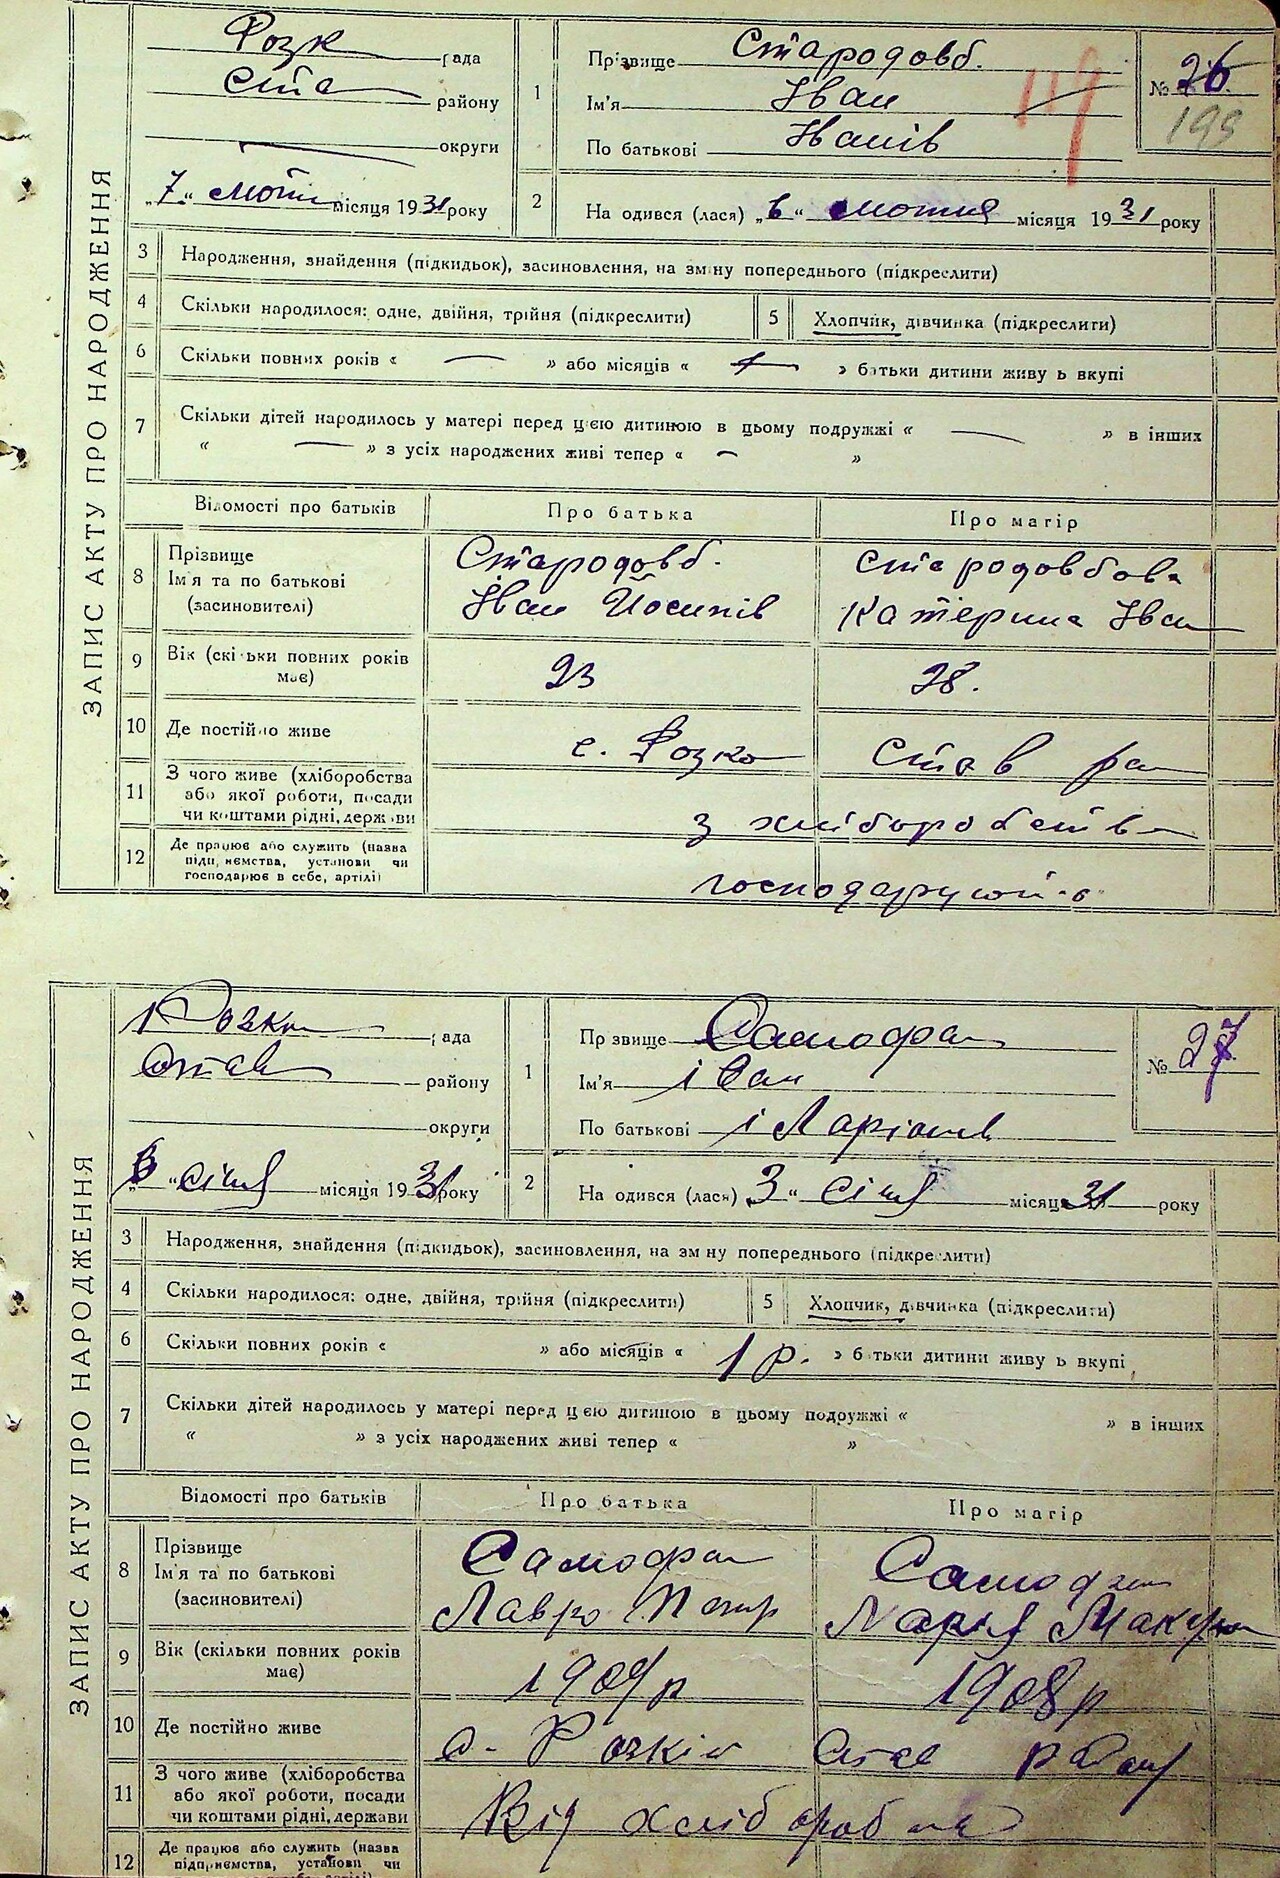 ЗАПИС АКТУ ПРО НАРОДЖЕННЯ
Розк рада
Ста району
округи
„7“ лютн місяця 1931 року
1 Прізвище Стародовб.
Ім'я Іван
По батькові Іванів
№ 26
119
199
2 На одився (лася) „6“ лютня місяця 1931 року
3 Народження, знайдення (підкидьок), засиновлення, на зміну попереднього (підкреслити)
4 Скільки народилося: одне, двійня, трійня (підкреслити) 5 Хлопчик, дівчинка (підкреслити)
6 Скільки повних років « — » або місяців « » батьки дитини живу ь вкупі
7 Скільки дітей народилось у матері перед цією дитиною в цьому подружжі « — » в інших
« — » з усіх народжених живі тепер « - »
Відомості про батьків Про батька Про матір
8 Прізвище Ім'я та по батькові (засиновителі)
Стародовб. Стародовбова
Іван Йосипів Катерина Іван
9 Вік (скільки повних років має) 23 28.
10 Де постійно живе с. Розко Став ра
11 З чого живе (хліборобства або якої роботи, посади чи коштами рідні, держави з хліборобств
12 Де працює або служить (назва підприємства, установи чи господарює в себе, артілі) господарують в
ЗАПИС АКТУ ПРО НАРОДЖЕННЯ
Розко рада
Став району
округи
„6“ січня місяця 1931 року
1 Прізвище Самофа
Ім'я Іван
По батькові іЛаріонів
№ 27
2 На одився (лася) 3 “ січня місяця 31 року
3 Народження, знайдення (підкидьок), засиновлення, на зм ну попереднього (підкреслити)
4 Скільки народилося: одне, двійня, трійня (підкреслити) 5 Хлопчик, дівчинка (підкреслити)
6 Скільки повних років « » або місяців « 1 р. » батьки дитини живу ь вкупі
7 Скільки дітей народилось у матері перед цією дитиною в цьому подружжі « » в інших
« » з усіх народжених живі тепер « »
Відомості про батьків Про батька Про матір
8 Прізвище Ім'я та по батькові (засиновителі)
Самофа
Лавро Петр Марія Макар
9 Вік (скільки повних років має) 1909 р 1908 р
10 Де постійно живе с. Розків Став району
11 З чого живе (хліборобства або якої роботи, посади чи коштами рідні, держави Від хлібороб
12 Де працює або служить (назва підприємства, установи чи